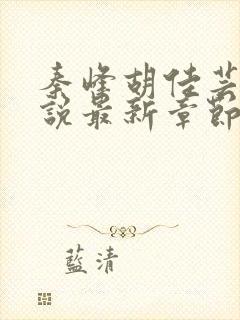 秦峰胡佳芸
說最新章節
藍清